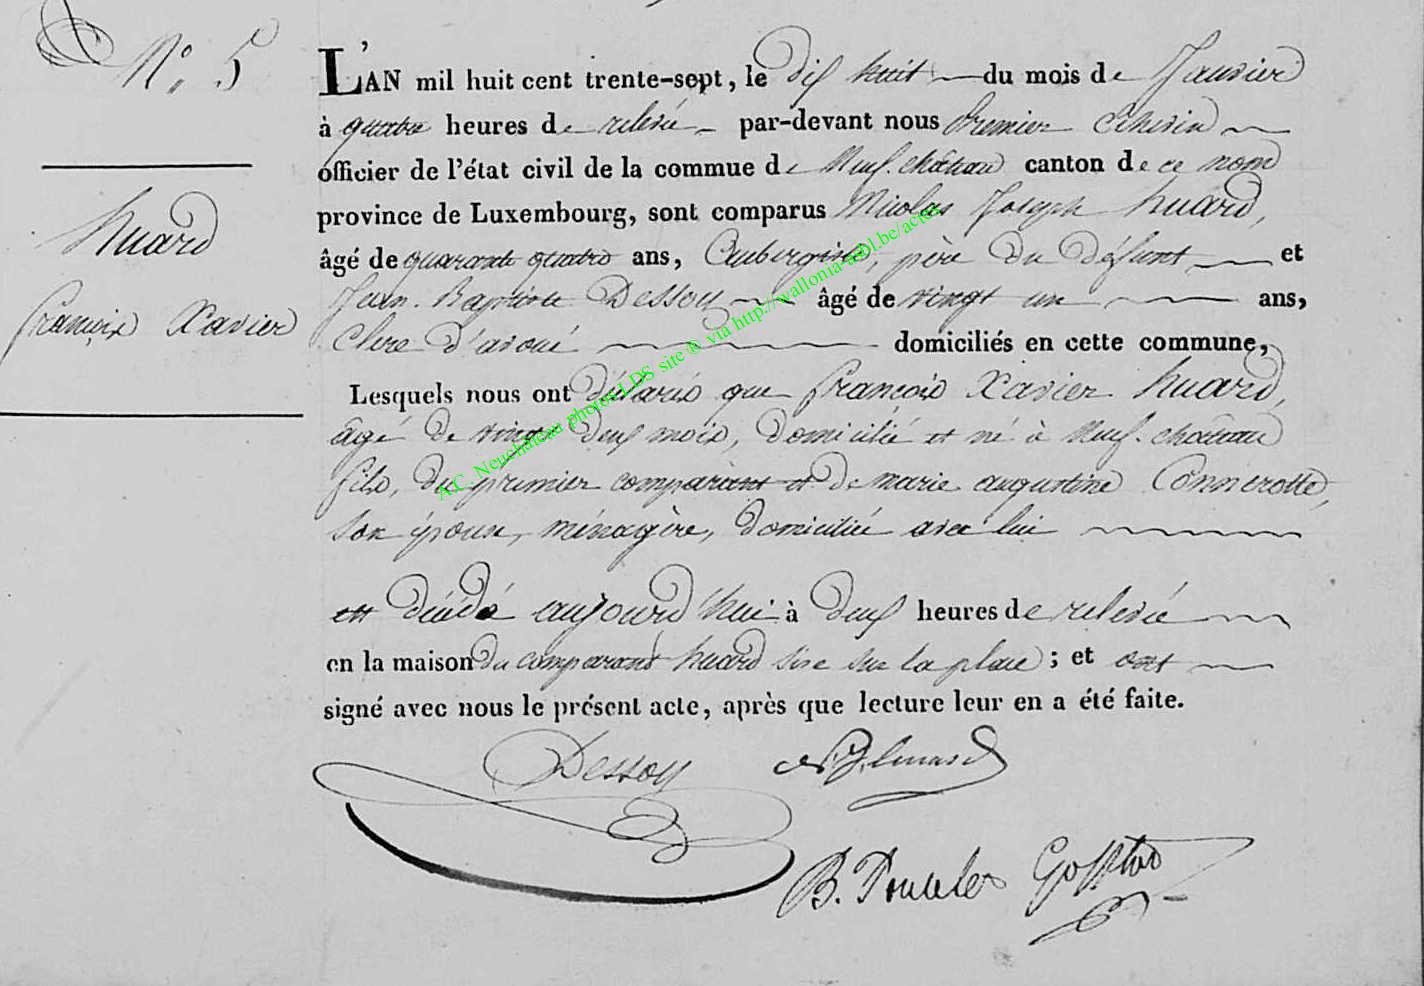 N.° 5
Huard
François Xavier
L'AN mil huit cent trente-sept, le dix huit du mois de Janvier
à quatre heures de relevée par-devant nous Premier Echevin
officier de l'état civil de la commue de Neuf-château canton de ce nom
province de Luxembourg, sont comparus Nicolas Joseph huard,
âgé de quarante quatre ans, Aubergiste, père du défunt et
Jean-Baptiste Dessoy âgé de vingt un ans,
Clerc d'avoué domiciliés en cette commune,
Lesquels nous ont déclaré que françois Xavier huard,
âgé de vingt deux mois, domicilié et né à Neuf-château
fils, du premier comparant et de marie augustine Connerotte,
son épouse, ménagère, domiciliée avec lui
est décédé aujourd'hui à deux heures de relevée
en la maison du comparant huard sise sur la place ; et ont
signé avec nous le présent acte, après que lecture leur en a été faite.
Dessoy
B. Poncelet
A.C. Neuchateau photos LDS site ® via http://wallonia-asbl.be/actes